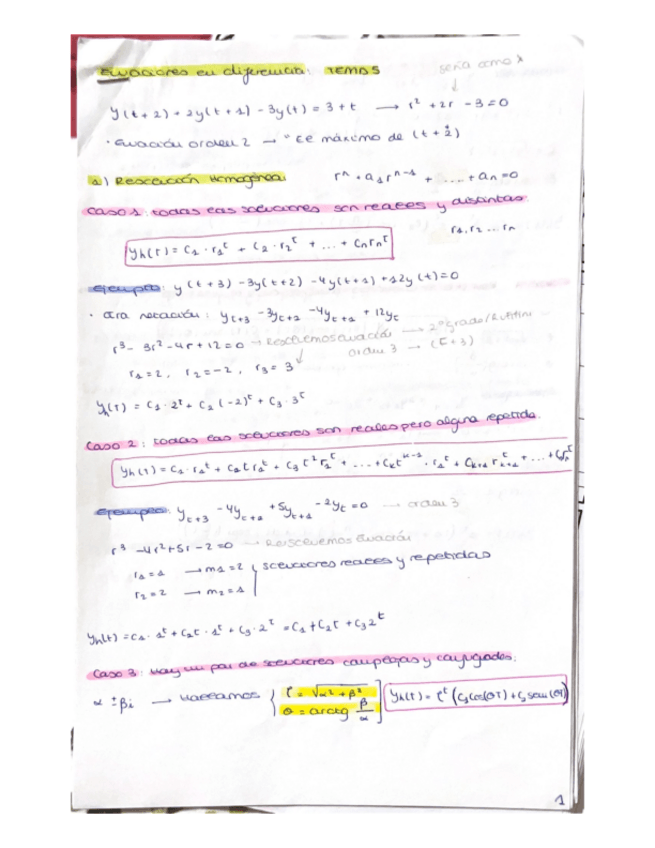 Ecuaciones en diferencia: TEMA 5
sería como x
y(t+2) + 2y(t+1) - 3y(t) = 3 + t → r² + 2r - 3 = 0
· Ecuación orden 2 → el máximo de (t+2)
1) Resolución Homogénea: rⁿ + a₁rⁿ⁻¹ + .... + aₙ = 0
Caso 1: todas las soluciones son reales y distintas
r₁, r₂ ... rₙ
yh(t) = C₁ · r₁ᵗ + C₂ · r₂ᵗ + ... + Cₙrₙᵗ
Ejemplo: y(t+3) - 3y(t+2) - 4y(t+1) + 12y(t) = 0
· Otra notación: yₜ₊₃ - 3yₜ₊₂ - 4yₜ₊₁ + 12yₜ
r³ - 3r² - 4r + 12 = 0 → Resolvemos ecuación → 2º grado / Ruffini
orden 3 → (t+3)
r₁ = 2, r₂ = -2, r₃ = 3
yh(t) = C₁ · 2ᵗ + C₂ (-2)ᵗ + C₃ · 3ᵗ
Caso 2: todas las soluciones son reales pero alguna repetida.
yh(t) = C₁ · r₁ᵗ + C₂t r₁ᵗ + C₃ t² r₁ᵗ + ... + Cₖtᵏ⁻¹ · r₁ᵗ + Cₖ₊₁ rₖ₊₁ᵗ + ... + Cₙrₙᵗ
Ejemplo: yₜ₊₃ - 4yₜ₊₂ + 5yₜ₊₁ - 2yₜ = 0 → orden 3
r³ - 4r² + 5r - 2 = 0 → Resolvemos ecuación
r₁ = 1 → m₁ = 2 } soluciones reales y repetidas
r₂ = 2 → m₂ = 1
yh(t) = C₁ · 1ᵗ + C₂t · 1ᵗ + C₃ · 2ᵗ = C₁ + C₂t + C₃2ᵗ
Caso 3: Hay un par de soluciones complejas y conjugadas:
α ± βi → Hallamos { r = √α² + β² yh(t) = rᵗ (C₁cos(θt) + C₂sen(θt))
θ = arctg β/α
1